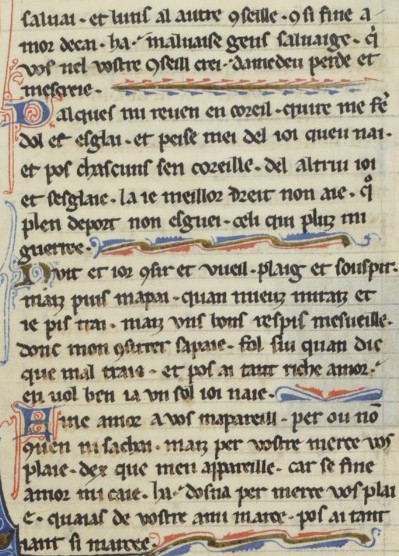 saluai · et luns al autre ꝯseille · ꝯ si fine a
mor decai · ha · maluaise gens saluaige · q̉
vos nel vostre ꝯseill crei · damedeu perde et
mescreie ·
Dalques mi reuen en coreil · quire me fe
dol et esglai · et peise mei del ioi queu nai ·
et pos chascuns sen coreille · del altrui ioi
et sesglaie · la ie meillor dreit non aie · q̉
plen deport non esguei · celi qui pluz mi
guerree ·
Nuit et ior ꝯsir et vueil · plaig et souspir ·
maiz puis mapai · quan mieuz mitaiz et
ie pis trai · maiz uns bons respis mesueille ·
donc mon ꝯsirrer sapaie · fol siu quan die
que mal traie · et pos ai tant riche amor ·
en uol ben ia un sol ioi naie ·
Fine amor a vos mapareill · per ou nō
quen ni sachai · maiz per vostre merce vos
plaie · dex que meu appareille · car se fine
amor mi caie · ha dosna per merce vos plai
e · quaias de vostre ami marce · pos ai tant
iant si marcee